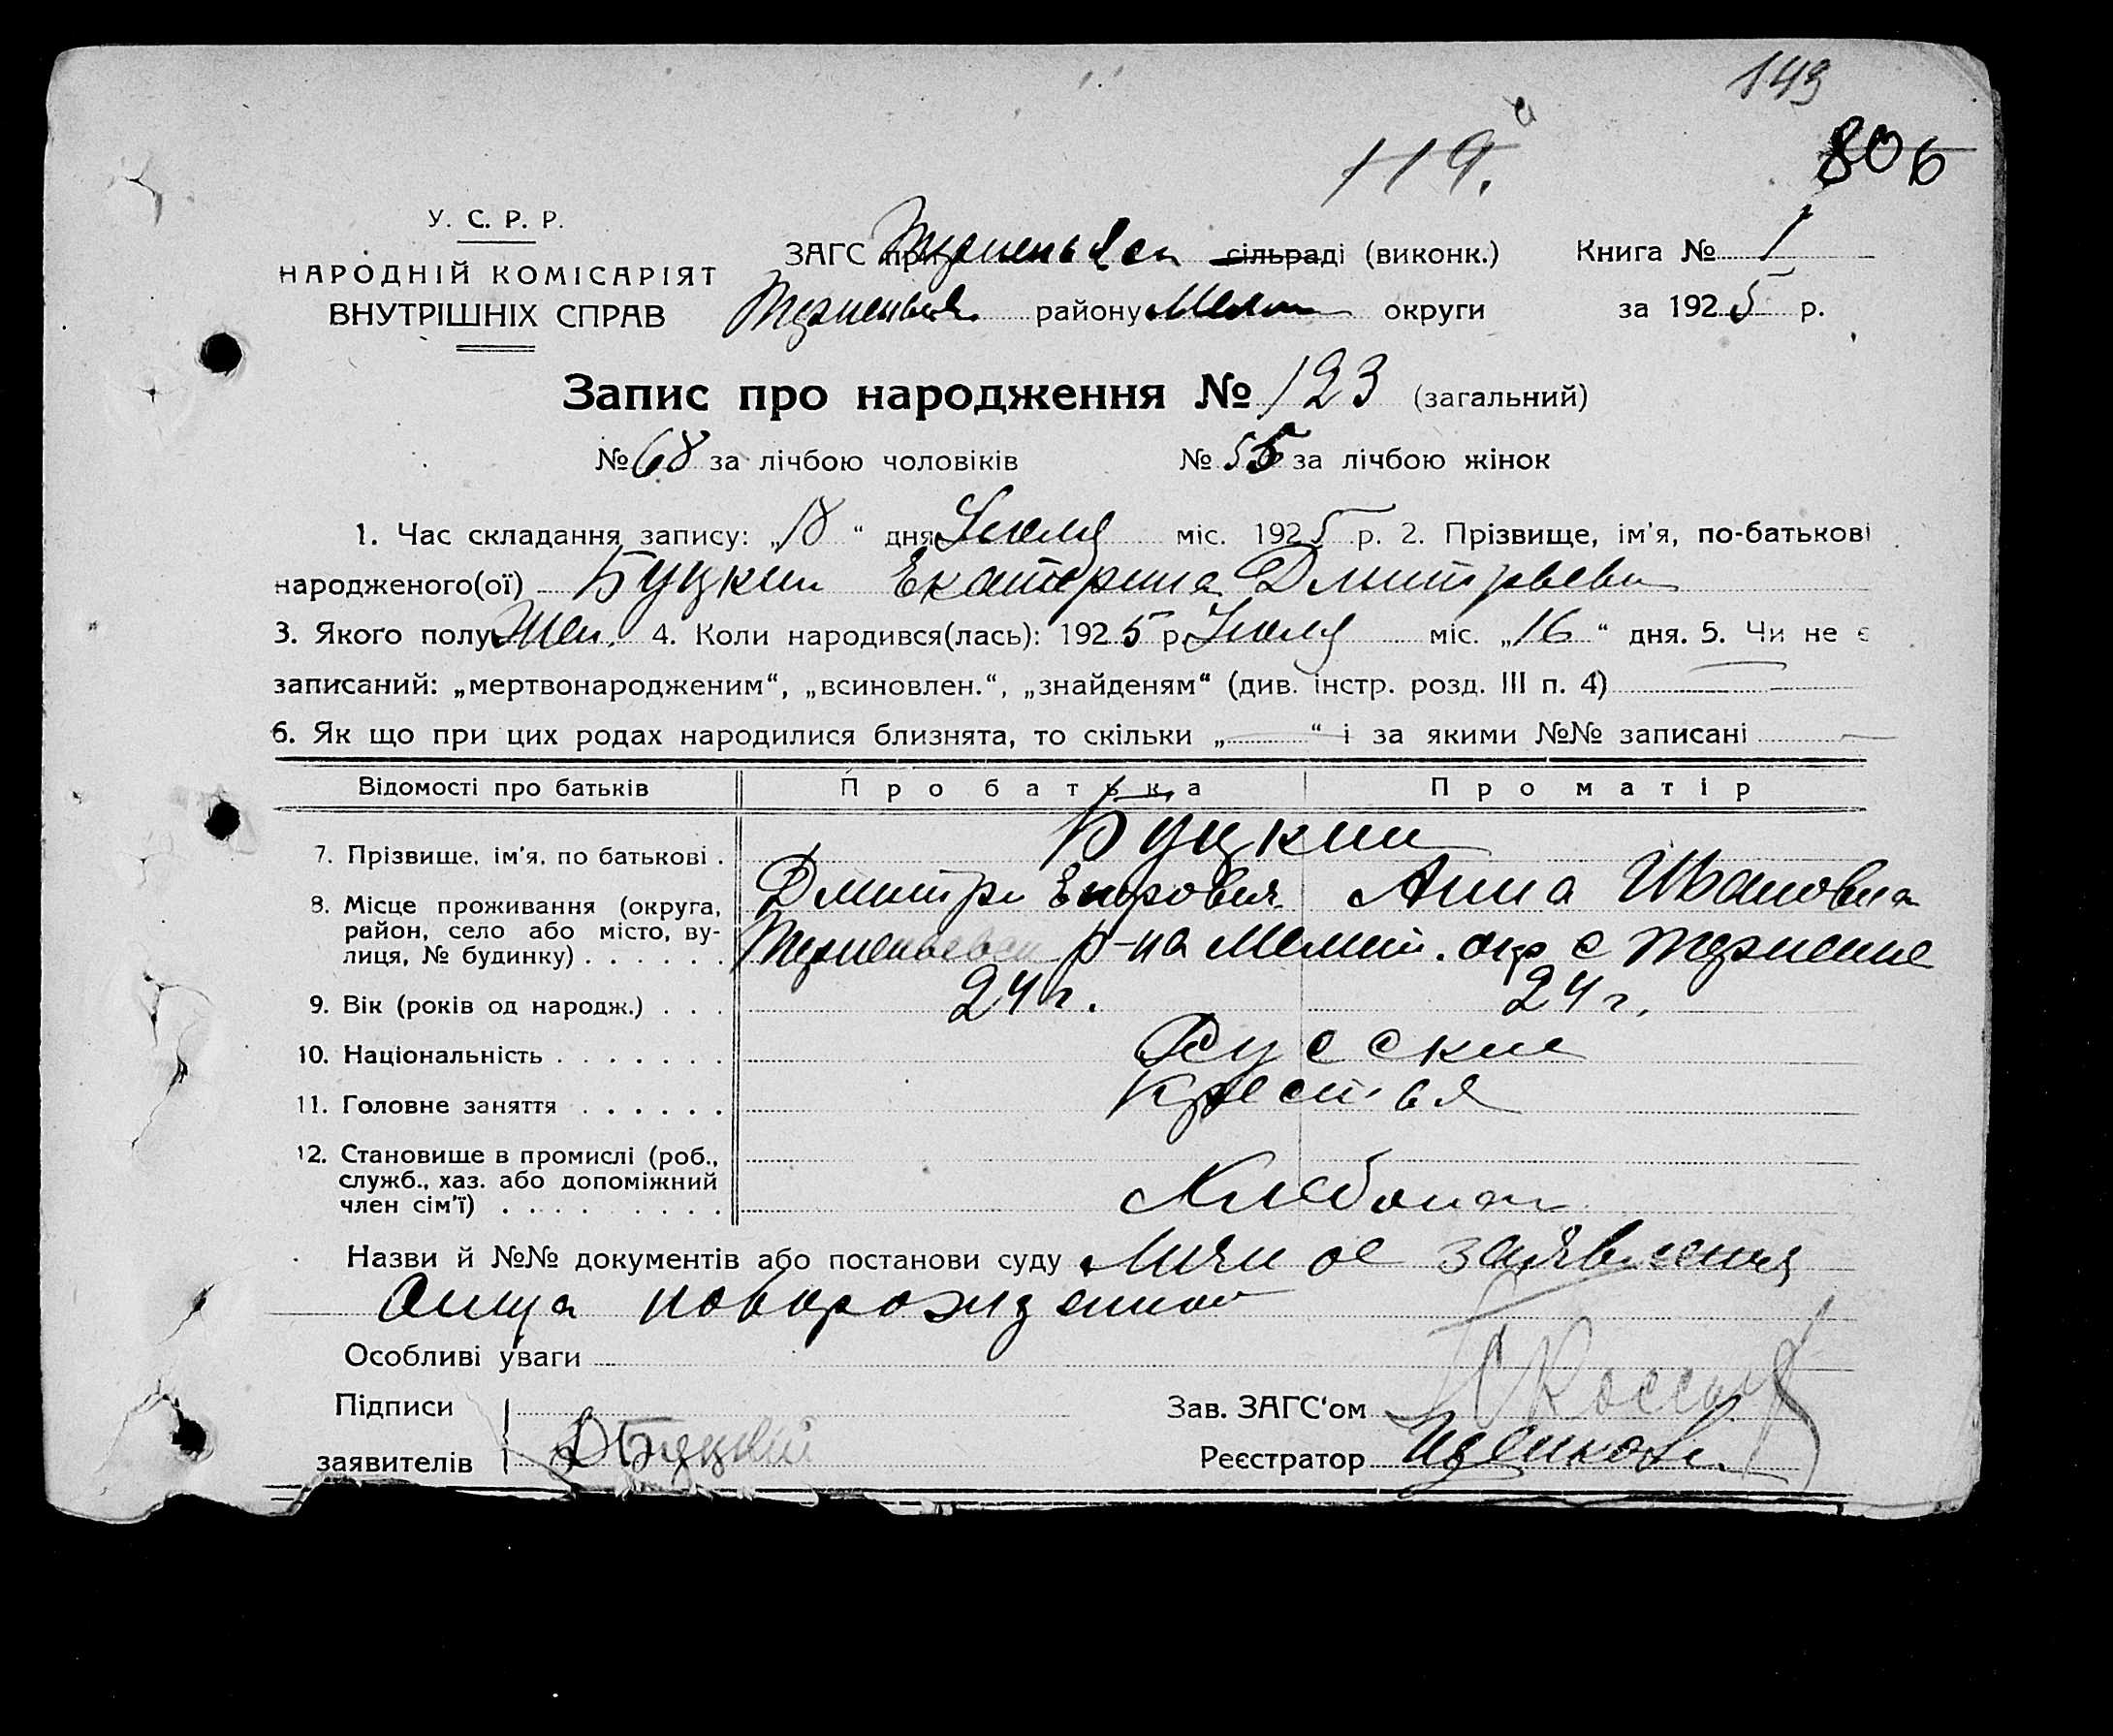 149
119.
80б
У. С. Р. Р.
НАРОДНІЙ КОМІСАРІЯТ
ВНУТРІШНІХ СПРАВ
ЗАГС при сільраді (виконк.) Книга № 1
району Мелит округи за 1925 р.
Запис про народження № 123 (загальний)
№ 68 за лічбою чоловіків № 55 за лічбою жінок
1. Час складання запису: „18“ дня Июля міс. 1925 р. 2. Прізвище, ім'я, по-батькові
народженого(ої) Буцкий Екатерина Дмитрьевн
3. Якого полу Жен. 4. Коли народився(лась): 1925 р Июля міс. „16“ дня. 5. Чи не є
записаний: „мертвонародженим“, „всиновлен.“, „знайденям“ (див. інстр. розд. III п. 4)
6. Як що при цих родах народилися близнята, то скільки „—“ і за якими №№ записані —
Відомості про батьків Про батька Про матір
7. Прізвище, ім'я, по батькові . Буцкии
Дмитри Егорович Анна Ивановна
8. Місце проживання (округа, район, село або місто, вулиця, № будинку) . . . . . . р-на Мелит. окр с Терпение
9. Вік (років од народж.) . . . 24 г. 24 г.
10. Національність . . . . . . . Русские
11. Головне заняття . . . . . . Крестья
12. Становище в промислі (роб., служб., хаз. або допоміжний член сім'ї) . . . . . . . . . Хлебопаш
Назви й №№ документів або постанови суду Личное заявления
Отца новорожденной
Особливі уваги
Підписи Зав. ЗАГС'ом
заявителів Д Буцкий Реєстратор